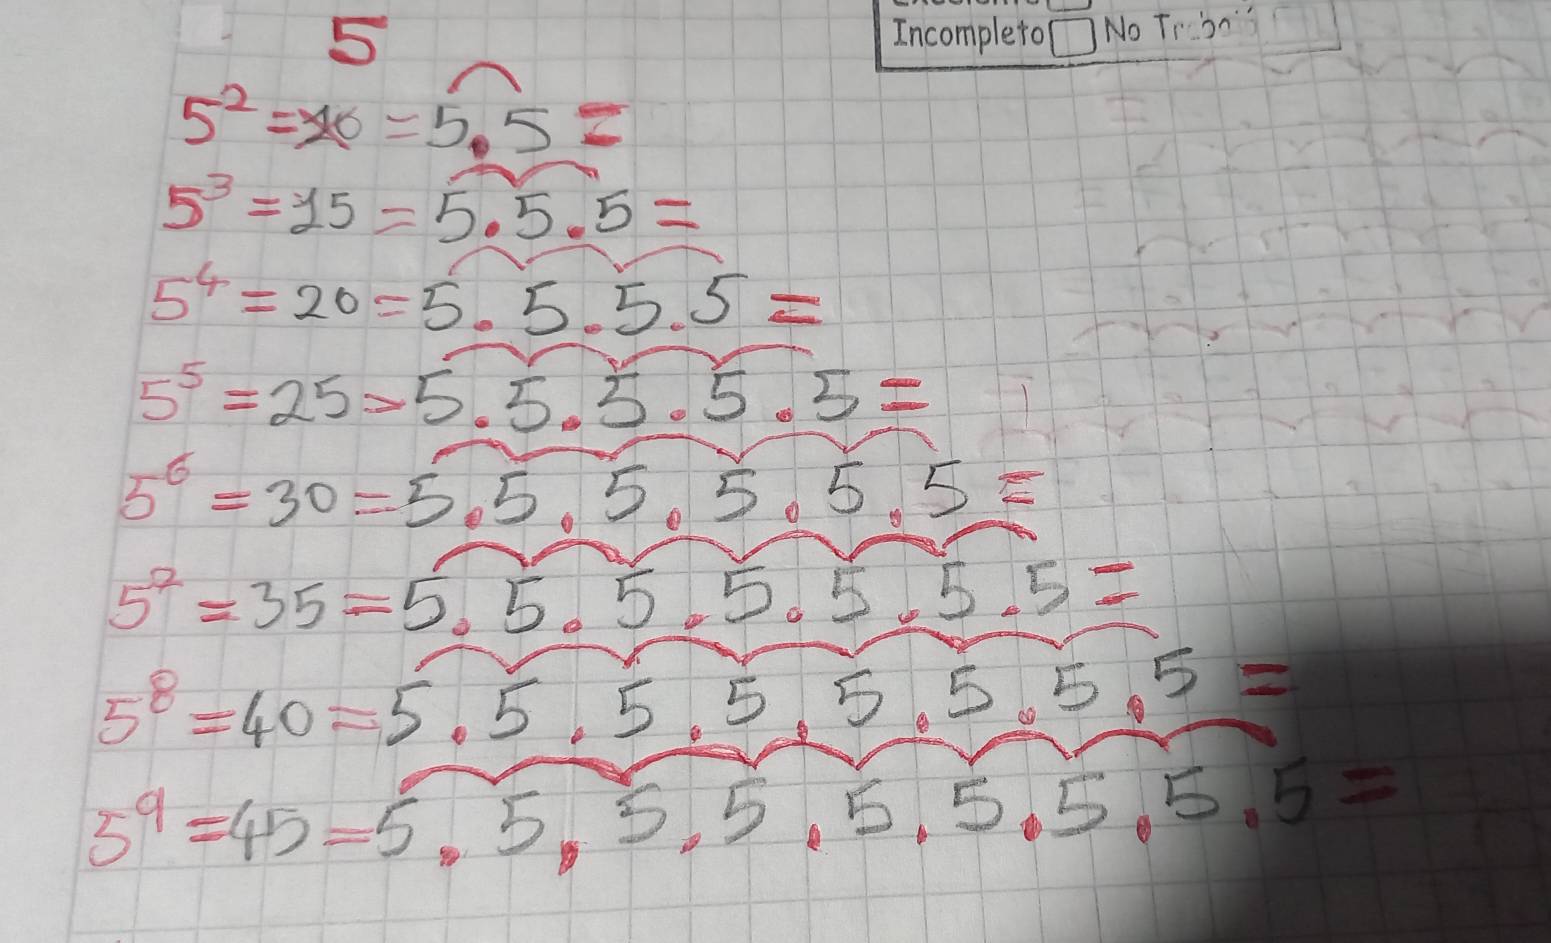 Incompleto No
5
5² = 10 = 5.5 =
5³ = 15 = 5.5.5 =
5⁴ = 20 = 5.5.5.5 =
5⁵ = 25 = 5.5.5.5.5 =
5⁶ = 30 = 5.5.5.5.5.5 =
5⁷ = 35 = 5.5.5.5.5.5.5 =
5⁸ = 40 = 5.5.5.5.5.5.5.5 =
5⁹ = 45 = 5.5.5.5.5.5.5.5.5 =